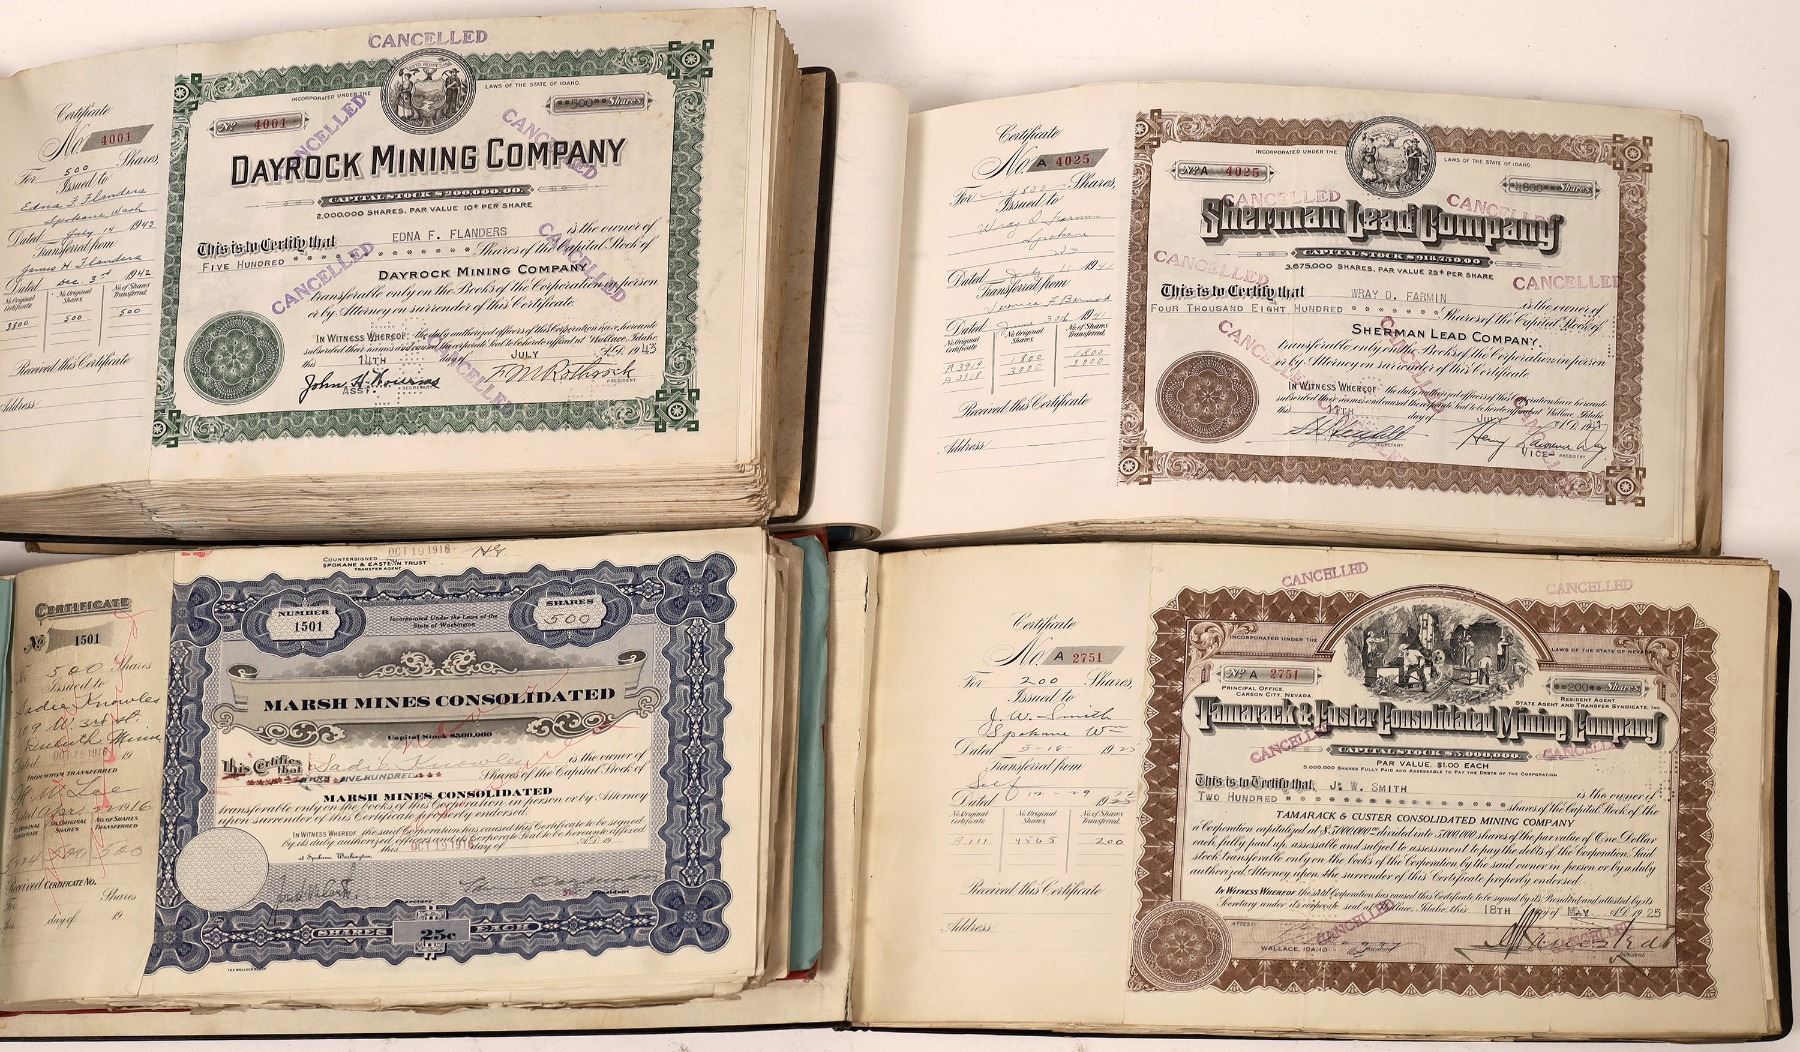 CANCELLED
Certificate
No. 4001
For 500 Shares,
Issued to
Edna F Flanders
Spokane, Wash
Dated July 14 1943
Transferred from
James H Flanders
Dated Dec. 3rd 1942
No. Original Certificate
No. Original Shares
No. of Shares Transferred
3800 500 500
Received this Certificate
Address
INCORPORATED UNDER THE LAWS OF THE STATE OF IDAHO
No. 4001
**500** Shares
CANCELLED
CANCELLED
DAYROCK MINING COMPANY
CAPITAL STOCK $200,000.00.
2,000,000 SHARES, PAR VALUE 10¢ PER SHARE
This is to Certify that EDNA F. FLANDERS is the owner of
FIVE HUNDRED * * * * * * * * Shares of the Capital Stock of
DAYROCK MINING COMPANY
transferable only on the Books of the Corporation in person
or by Attorney on surrender of this Certificate.
CANCELLED
CANCELLED
IN WITNESS WHEREOF the duly authorized officers of this Corporation have hereunto
subscribed their names and caused the corporate Seal to be hereto affixed at Wallace, Idaho
this 14TH day of JULY A.D. 1943
CANCELLED
ASST. SECRETARY
F M Rothrock
PRESIDENT
Certificate
No. A 4025
For 4800 Shares,
Issued to
Wray D. Farmin
Spokane
Dated July 11 1941
Transferred from
Dated June 30th 1941
No. Original Certificate
No. Original Shares
No. of Shares Transferred
A3919 1800 1800
A3918 3000 3000
Received this Certificate
Address
INCORPORATED UNDER THE LAWS OF THE STATE OF IDAHO
No. A 4025
*4800** Shares
CANCELLED
CANCELLED
Sherman Lead Company
CAPITAL STOCK $918,750.00.
3,675,000 SHARES, PAR VALUE 25¢ PER SHARE
CANCELLED
CANCELLED
This is to Certify that WRAY D. FARMIN is the owner of
FOUR THOUSAND EIGHT HUNDRED * * * * * * * Shares of the Capital Stock of
SHERMAN LEAD COMPANY.
transferable only on the Books of the Corporation in person
or by Attorney on surrender of this Certificate.
IN WITNESS WHEREOF the duly authorized officers of this Corporation have hereunto
subscribed their names and caused the corporate Seal to be hereto affixed at Wallace, Idaho
this 11TH day of JULY A.D. 19
SECRETARY
Henry Lawrence Day
VICE- PRESIDENT
COUNTERSIGNED OCT 19 1916
SPOKANE & EASTERN TRUST
TRANSFER AGENT
CERTIFICATE
No 1501
For 500 Shares
Issued to
Sadie Knowles
Duluth Minn
Dated OCT 19 1916 19
FROM WHOM TRANSFERRED
H. M. Lee
NO. ORIGINAL SHARES
NO. OF SHARES TRANSFERRED
500 500
Received CERTIFICATE NO.
Shares
day of 19
NUMBER
1501
Incorporated Under the Laws of the
State of Washington
SHARES
500
MARSH MINES CONSOLIDATED
Capital Stock $500,000
This Certifies that Sadie Knowles is the owner of
FIVE HUNDRED *** Shares of the Capital Stock of
MARSH MINES CONSOLIDATED
transferable only on the books of this Corporation in person or by Attorney
upon surrender of this Certificate properly endorsed.
IN WITNESS WHEREOF the said Corporation has caused this Certificate to be signed
by its duly authorized officers and its Corporate Seal to be hereunto affixed
this OCT 19 1916 day of A.D. 19
at Spokane, Washington.
Secretary
President
SHARES 25¢ EACH
Certificate
No. A 2751
For 200 Shares,
Issued to
J. W. Smith
Spokane Wn
Dated 5-18- 1925
Transferred from
Self
Dated 12-29
No. Original Certificate
No. Original Shares
No. of Shares Transferred
A 111 4565 200
Received this Certificate
Address
CANCELLED
CANCELLED
INCORPORATED UNDER THE LAWS OF THE STATE OF NEVADA
No. A 2751
**200** Shares
PRINCIPAL OFFICE,
CARSON CITY, NEVADA
RESIDENT AGENT
STATE AGENT AND TRANSFER SYNDICATE, INC
Tamarack & Custer Consolidated Mining Company
CANCELLED
CANCELLED
CAPITAL STOCK $5,000,000.
PAR VALUE, $1.00 EACH
5,000,000 SHARES FULLY PAID AND ASSESSABLE TO PAY THE DEBTS OF THE CORPORATION
This is to Certify that, J. W. SMITH is the owner of
TWO HUNDRED * * * * * * * * * * * * shares of the Capital Stock of the
TAMARACK & CUSTER CONSOLIDATED MINING COMPANY
a Corporation capitalized at $5,000,000.00 divided into 5,000,000 shares of the par value of One Dollar
each, fully paid up, assessable and subject to assessment to pay the debts of the Corporation. Said
stock transferable only on the books of the Corporation by the said owner in person or by a duly
authorized Attorney upon the surrender of this Certificate properly endorsed.
In Witness Whereof the said Corporation has caused this Certificate to be signed by its President and attested by its
Secretary under its corporate seal at Wallace, Idaho, this 18TH day of MAY A.D. 1925
CANCELLED
ATTEST:
WALLACE, IDAHO
President